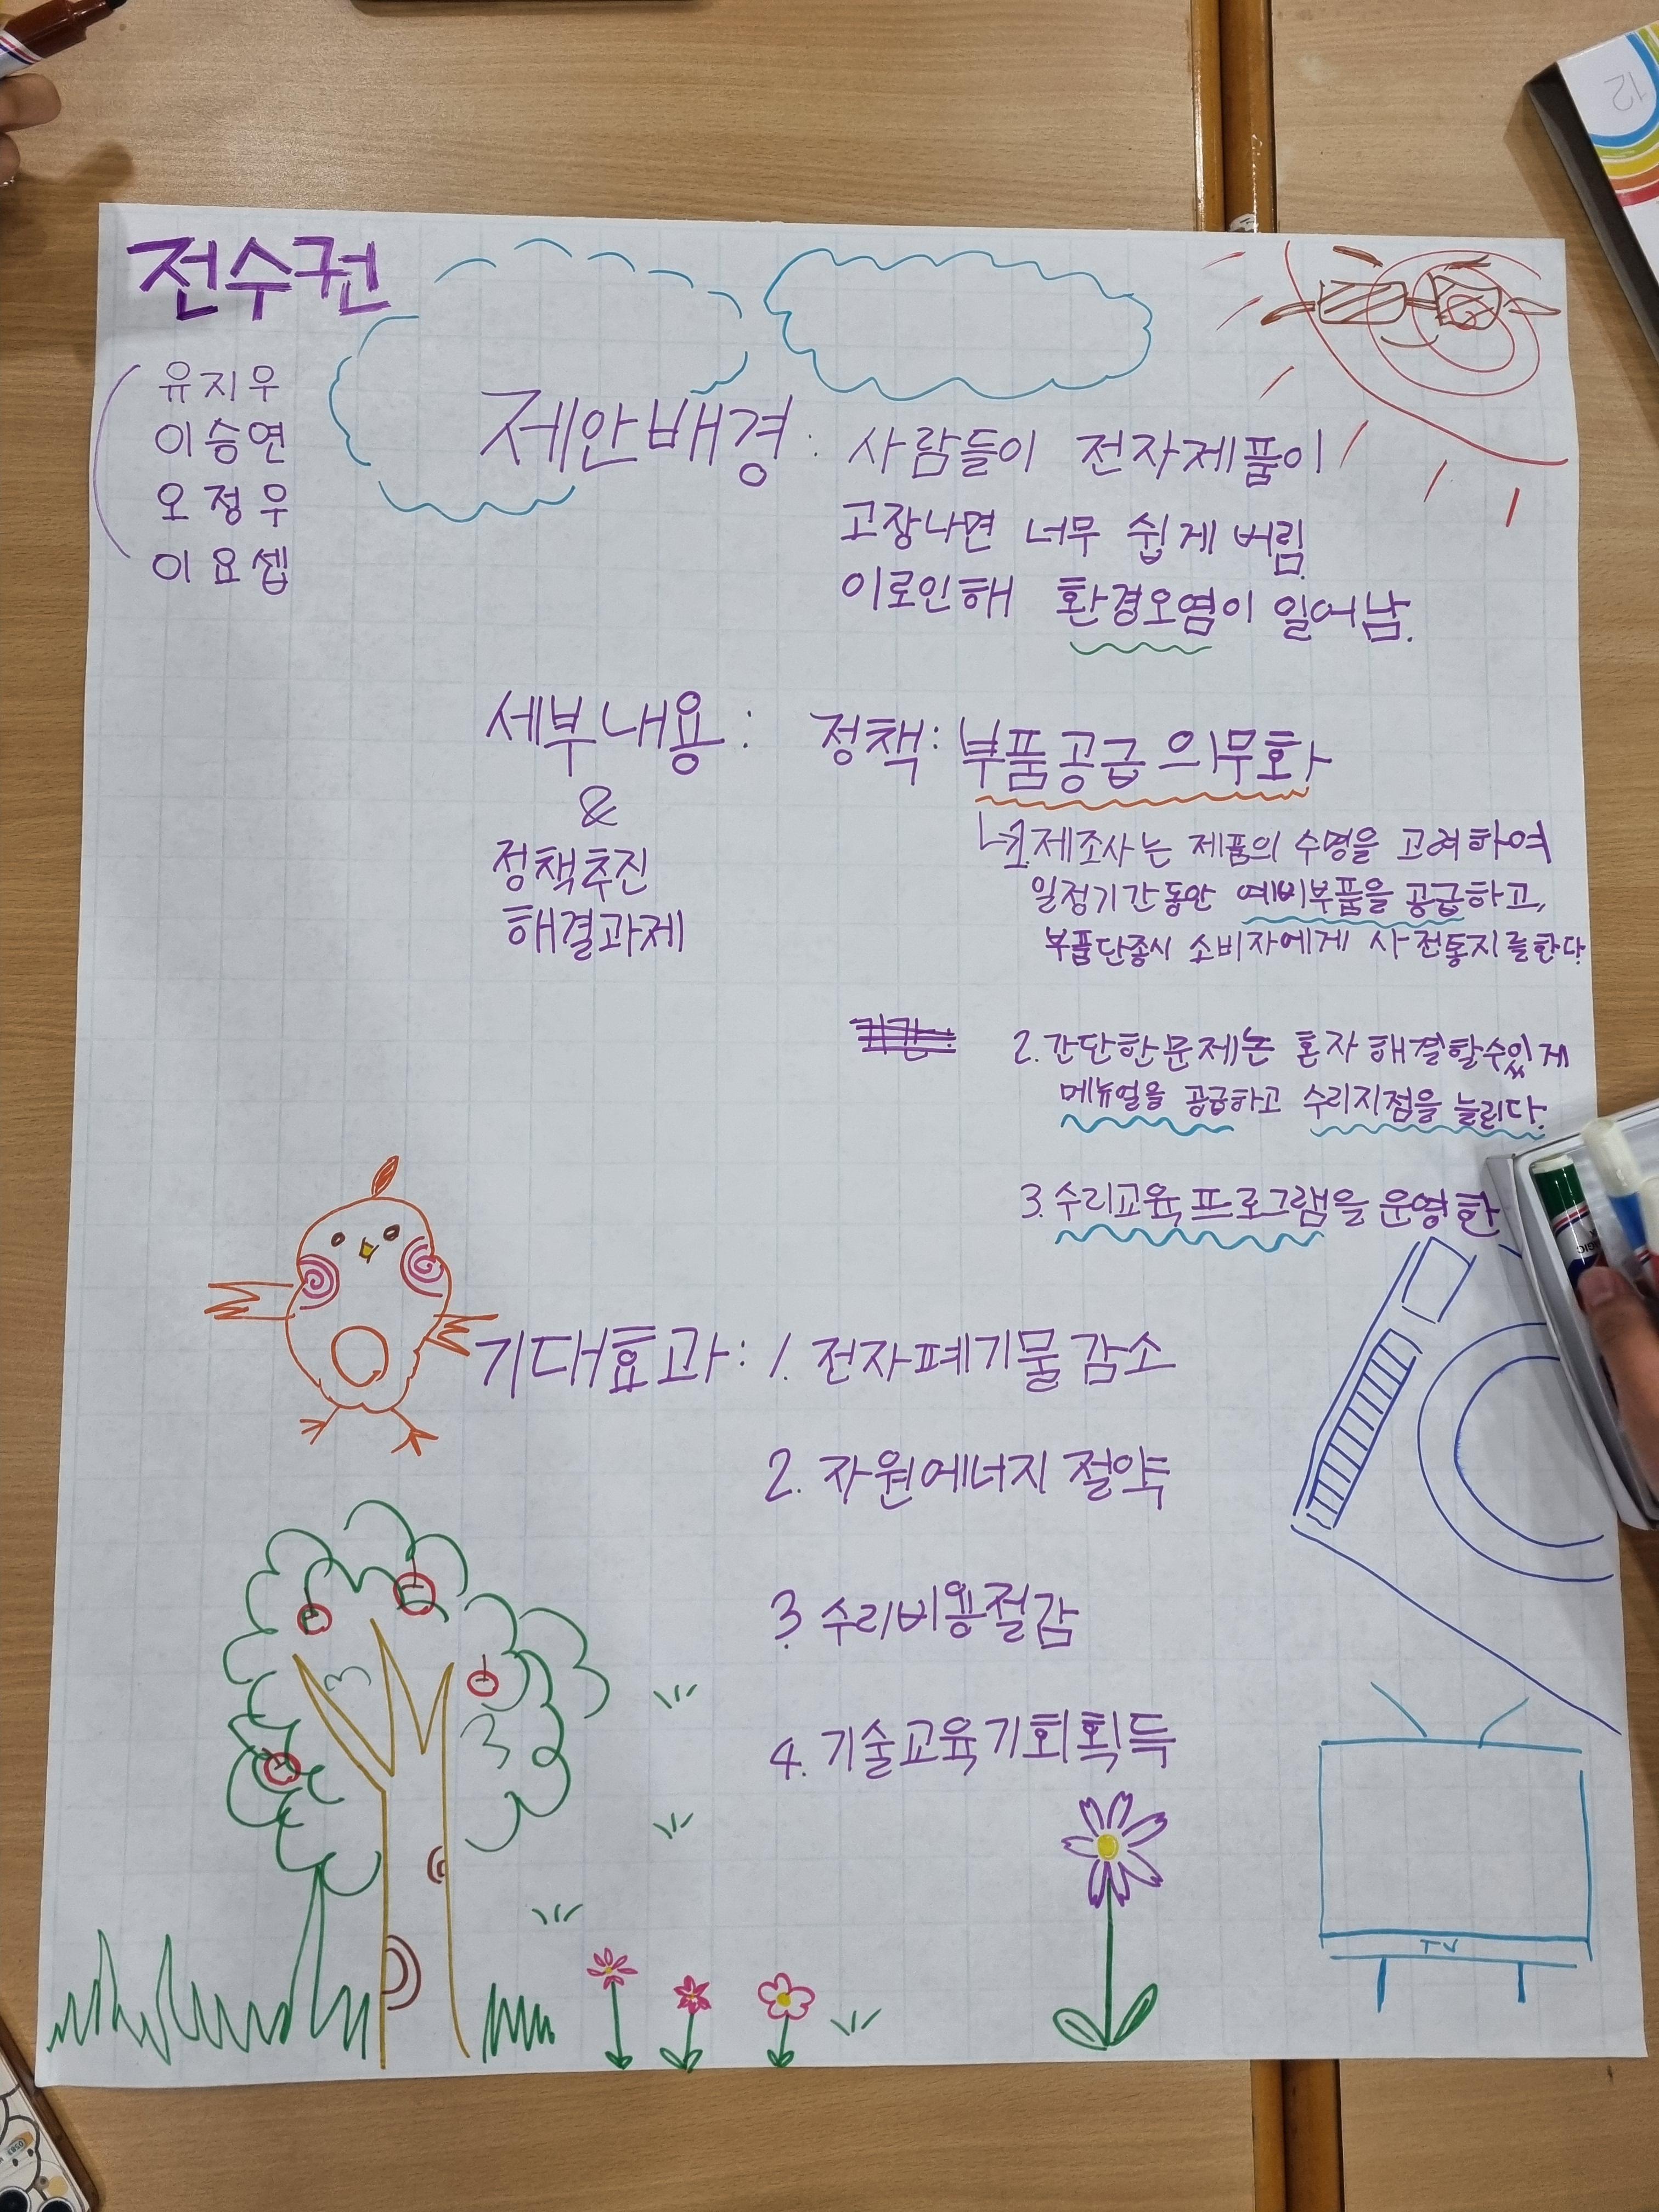 전수권
유지우
이승연
오정우
이요셉
제안배경: 사람들이 전자제품이
고장나면 너무 쉽게 버림
이로인해 환경오염이 일어남.
세부내용: 정책: 부품공급 의무화
&
정책추진
해결과제
1.제조사는 제품의 수명을 고려하여
일정기간동안 예비부품을 공급하고,
부품단종시 소비자에게 사전통지를한다
2.간단한문제는 혼자 해결할수있게
메뉴얼을 공급하고 수리지점을 늘린다.
3.수리교육프로그램을 운영한
기대효과: 1. 전자폐기물감소
2. 자원에너지 절약
3. 수리비용절감
4. 기술교육기회획득
TV
12